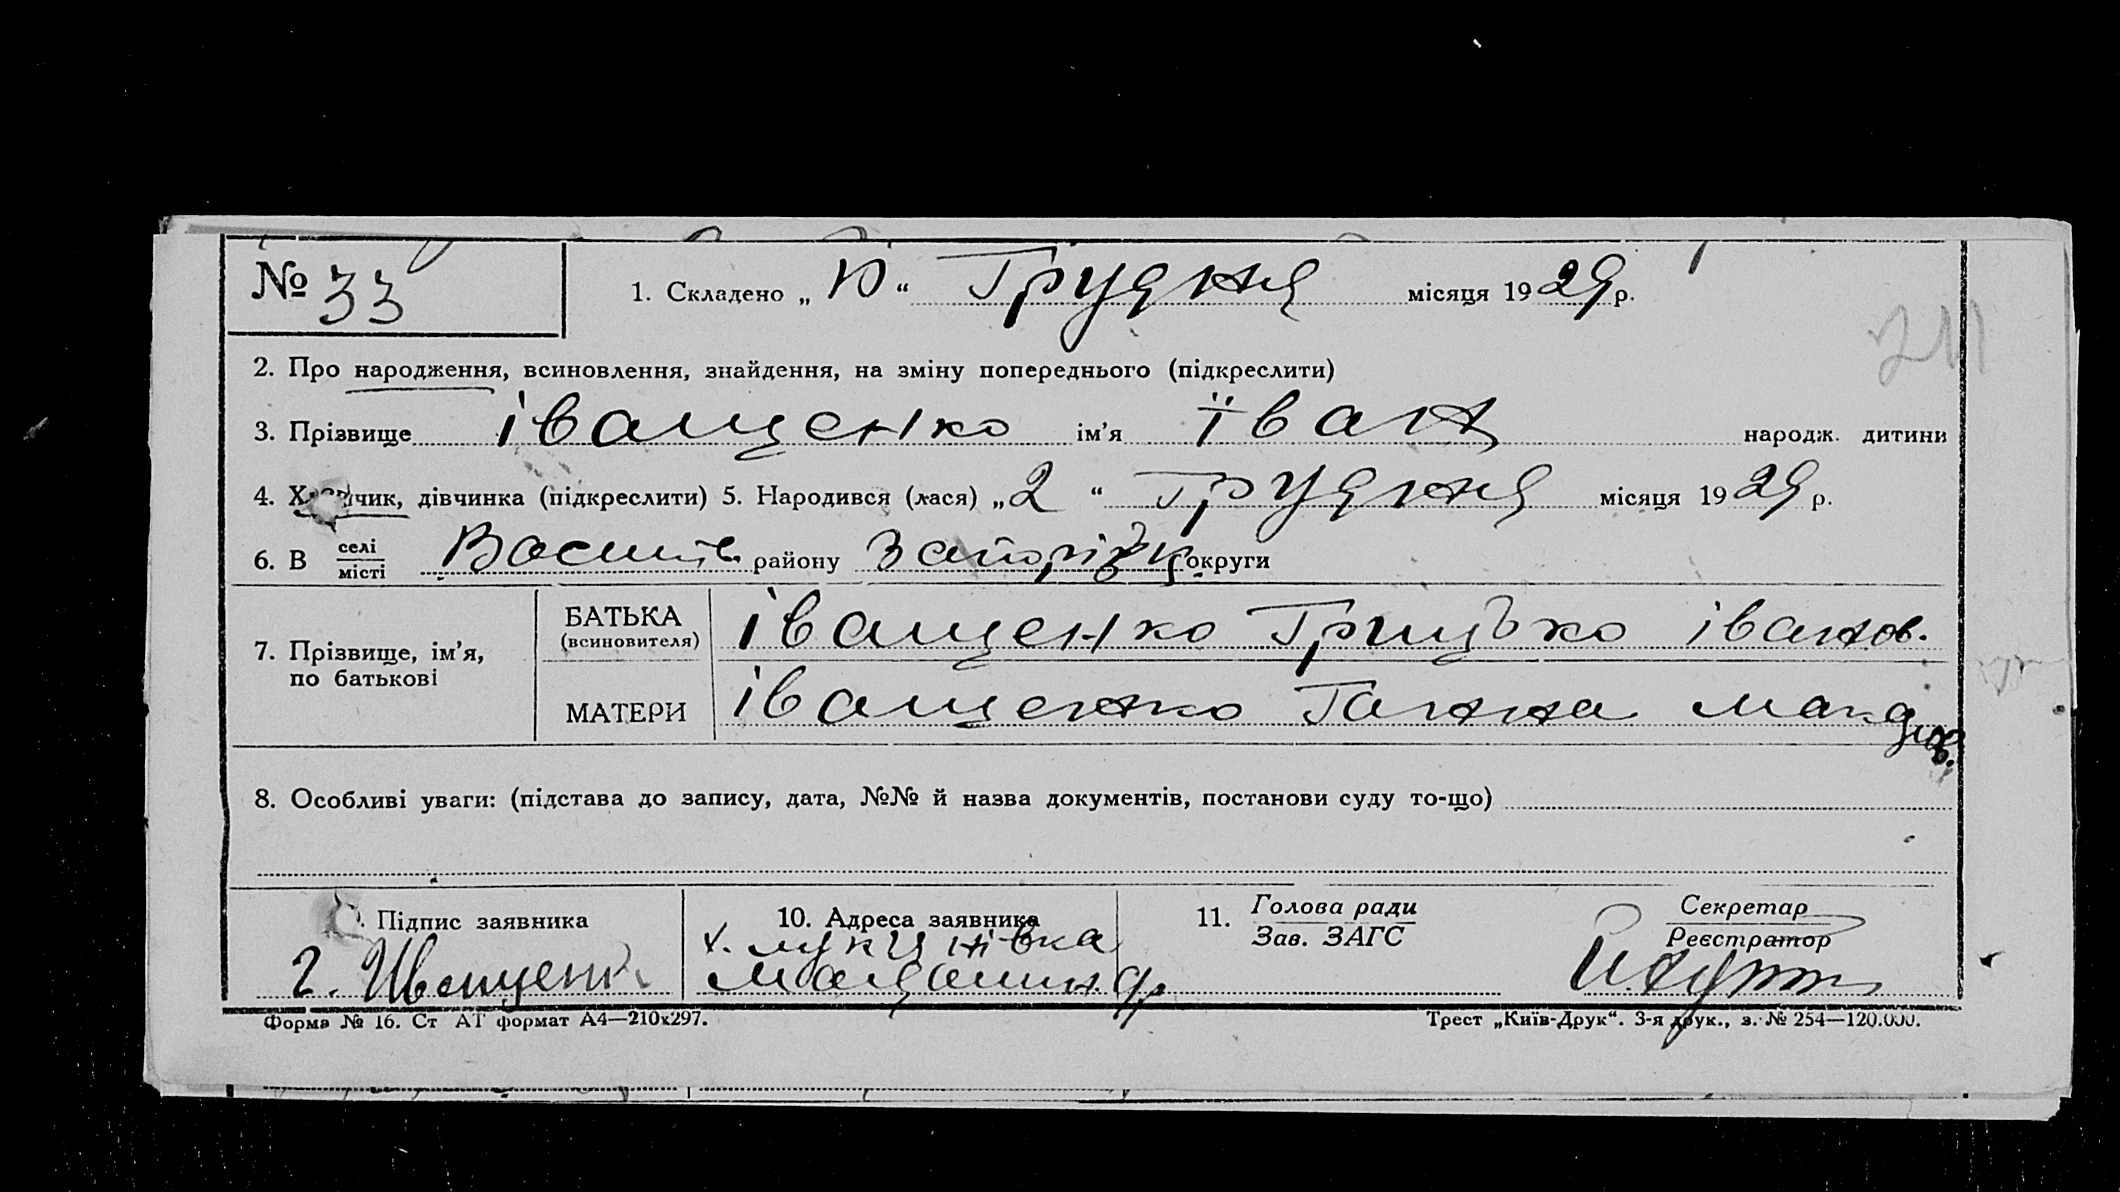 № 33
1. Складено „ 10 “ Грудня місяця 1929 р.
2. Про народження, всиновлення, знайдення, на зміну попереднього (підкреслити)
3. Прізвище іващенко ім’я їван народж. дитини
4. Хлопчик, дівчинка (підкреслити) 5. Народився (лася) „ 2 “ Грудня місяця 1929 р.
6. В селі місті району Запорізьк. округи
7. Прізвище, ім’я, по батькові
БАТЬКА (всиновителя) іващенко Грицько іванов.
МАТЕРИ іващенко Ганна
8. Особливі уваги: (підстава до запису, дата, №№ й назва документів, постанови суду то-що)
Підпис заявника
10. Адреса заявника
11. Голова ради
Зав. ЗАГС
Секретар
Реєстратор
Г. Иващенк
х.
Форма № 16. Ст АТ формат А4—210х297.
Трест „Київ-Друк“. 3-я друк., з. № 254—120.000.
211